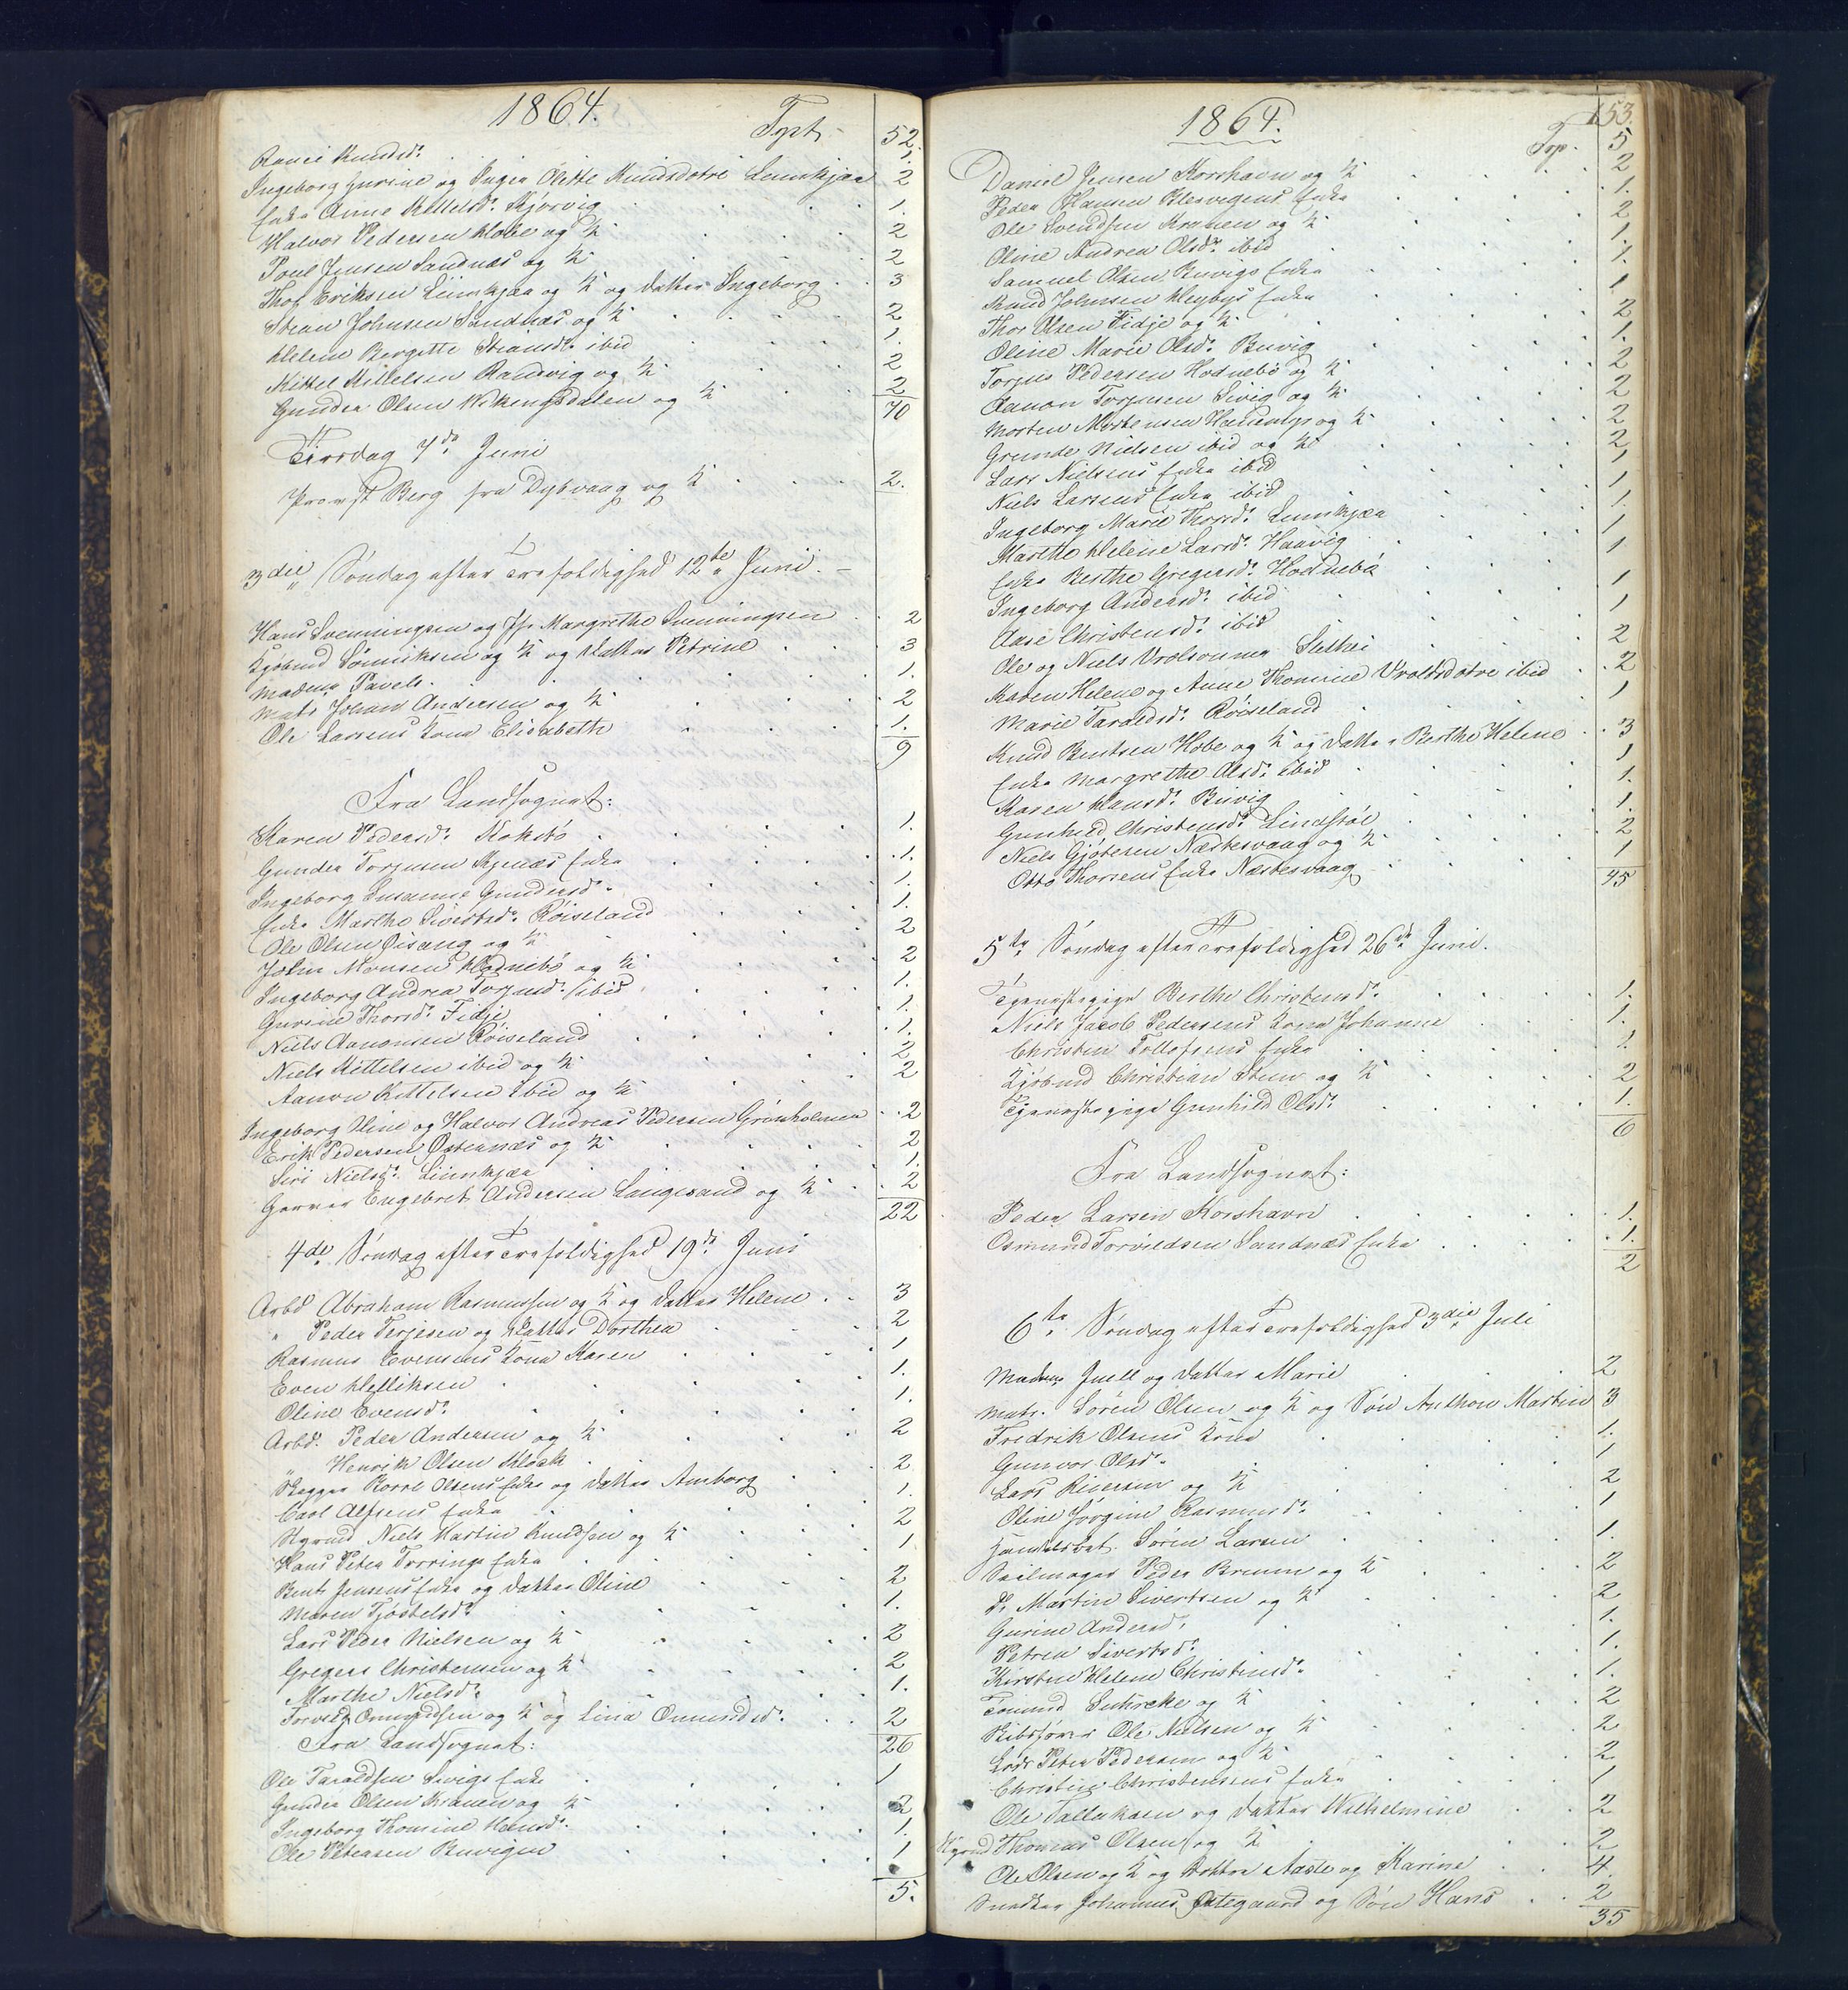 1864.
Tpt. 52.
Anne Knudsd:r 1.
Ingeborg Gurine og Inger Olette Knudsdøtre Lunnkjær 2
Enke Anne Kittelsd:r Kjørvig 1.
Halvor Pedersen Hobe og K 2
Poul Jensen Sandnæs og K 2
Thor Eriksen Lunnkjær og K og Datter Ingeborg 3
Stian Johnsen Sandnæs og K 2
Helene Bergitte Stiansd:r ibid 1.
Kittel Kittelsen Randvig og K 2
Gunder Olsen Vikingsdalen og K 2
70
Tirsdag 7de Juni
Provst Berg fra Dybvaag og K 2.
3die Søndag efter Trefoldighed 12te Juni.
Hans Svenningsen og Margrethe Svenningsen 2
Kjøbmd Sønniksen og K og Datter Petrine 3
Madme Pavels 1.
Matr Johan Andersen og K 2
Ole Larsens Kone Elisabeth 1.
9
Fra Landsognet:
Karen Pedersd:r Kokebø 1.
Gunder Torjusen Skjenæs Enke 1.
Ingeborg Susanne Gundersd:r 1.
Enke Marthe Sivertsd:r Røiseland 1.
Ole Olsen Øisang og K 2
John Monsen Hødnebø og K 2
Ingeborg Andrea Torjusd:r ibid 1.
Gurine Thorsd:r Fidje 1.
Niels Aanonsen Røiseland 1.
Niels Kittelsen ibid og K 2
Aanon Kittelsen ibid og K 2
Ingeborg Oline og Halvor Andreas Pedersen Grønholmen 2
Erik Pedersen Østernæs og K 2
Siri Nielsd:r Lunnkjær 1.
Garver Engebret Andersen Laugesand og K 2
22
4de Søndag efter Trefoldighed 19de Juni
Arbd Abraham Rasmussen og K og Datter Helene 3
" Peder Terjesen og Datter Dorthea 2
Rasmus Evensens Kone Karen 1
Even Helliksen 1.
Oline Evensd:r 1.
Arbd. Peder Andersen og K 2
" Henrik Olsen Kløck
Borre Olsens Enke og Datter Amborg 2
Carl Alfsens Enke 1.
Niels Martin Knudsen og K 2
Hans Peter Tørrings Enke 1
Bent Jensens Enke og Datter Oline 2
Maren Tjøstelsd:r 1.
Lars Peder Nielsen og K 2
Gregers Christensen og K 2
Marthe Nielsd:r 1.
Torvild Omundsen og K og Lina Omundsd:r 2
Fra Landsognet: 26
Ole Taraldsen Sivigs Enke 1
Gunder Olsen Kranen og K 2
Ingeborg Thomine Hansd:r 1.
Ole Petersen Buvigen 1
5.
153.
1864.
Trp. 5
Daniel Jensen Korshavn og K 2
Peder Hansen Klevigens Enke 1.
Ole Svendsen Kranen og K 2
Oline Andrea Olsd:r ibid 1.
Samuel Olsen Buvigs Enke 1.
Knud Johnsen Heybys Enke 1
Thor Olsen Fidje og K 2
Oline Marie Olsd:r Buvig 1.
Torjus Pedersen Hodnebø og K 2
Aanon Torjusen Sivig og K 2
Morten Mortensen og K 2
Grunde Nielsen ibid og K 2
Lars Nielsens Enke ibid 1
Niels Larsens Enke ibid 1
Ingeborg Marie Thorsd:r Lunnkjær 1.
Marthe Helene Larsd:r Haavig 1
Enke Berthe Gregersd:r Hodnebø 1
Ingeborg Andersd:r ibid 1
Aase Christensd:r ibid 1
Ole og Niels Vrolsønner Slethei 2
Karen Helene og Anne Thomine Vrolsdøtre ibid 2
Marie Taraldsd:r Røiseland 1
Knud Bentsen Hobe og K og Datter Berthe Helene 3
Enke Margrethe Olsd:r ibid 1
Karen Hansd:r Buvig 1.
Gunhild Christensd:r Lindstøl 1.
Niels Gjøbesen Næstesvaag og K 2
Otto Thorsens Enke Næstesvaag 1
45
5te Søndag efter Trefoldighed 26de Juni.
Tjenestepige Berthe Christensd:r 1.
Niels Jacob Pedersens Kone Johanne 1.
Christen Tollefsens Enke 1.
Kjøbmd Christian Steen og K 2
Tjenestepige Gunhild Olsd:r 1.
6
Fra Landsognet:
Peder Larsen Korshavn 1.
Osmund Torvildsen Sandnæs Enke 1.
2
6te Søndag efter Trefoldighed 3die Juli
Madme Juell og Datter Marie 2
Matr. Søren Olsen og K og Søn Anthon Martin 3
Fredrik Olsens Kone 1.
Gunvor Olsd:r 1
Lars Riversen og K 2
Oline Jørgine Rasmusd:r 1
Handelsbet. Søren Larsen 1.
Seilmager Peder Bruun og K 2
Martin Sivertsen og K 2
Gurine Andersd:r 1.
Petrea Sivertsd:r 1.
Kirsten Helene Christensd:r 1.
Tømmd Luhrcke og K 2
Skibsfører Ole Nielsen og K 2
Lods Peter Pedersen og K 2
Christen Christensens Enke 1
Ole Tallaksen og Datter Wilhelmine 2
Thomas Olsen og K 2
Ole Olsen og K og Døttre Aaste og Karine 4.
Snedker Johannes Østegaard og Søn Hans 2
35